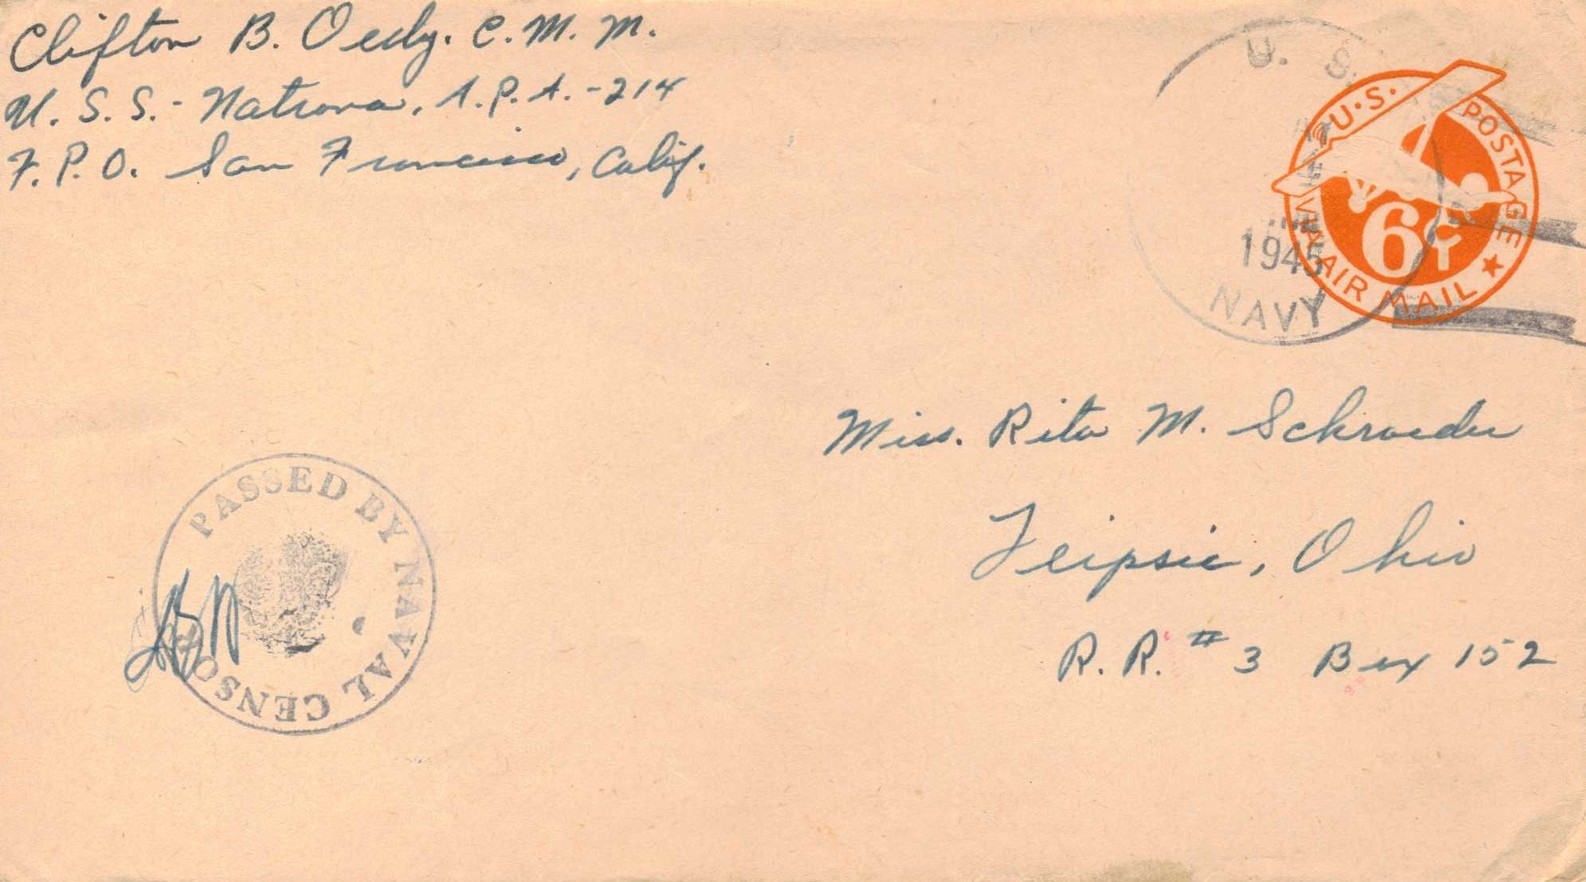 Clifton B. Oedy. C.M.M.
U.S.S.- Natrona, A.P.A.-214
F.P.O. San Francisco, Calif.
U. S.
1945
NAVY
U.S. POSTAGE
6¢
VIA AIR MAIL
Miss. Rita M. Schroeder
Leipsic, Ohio
R.R. #3 Box 152
PASSED BY NAVAL CENSOR